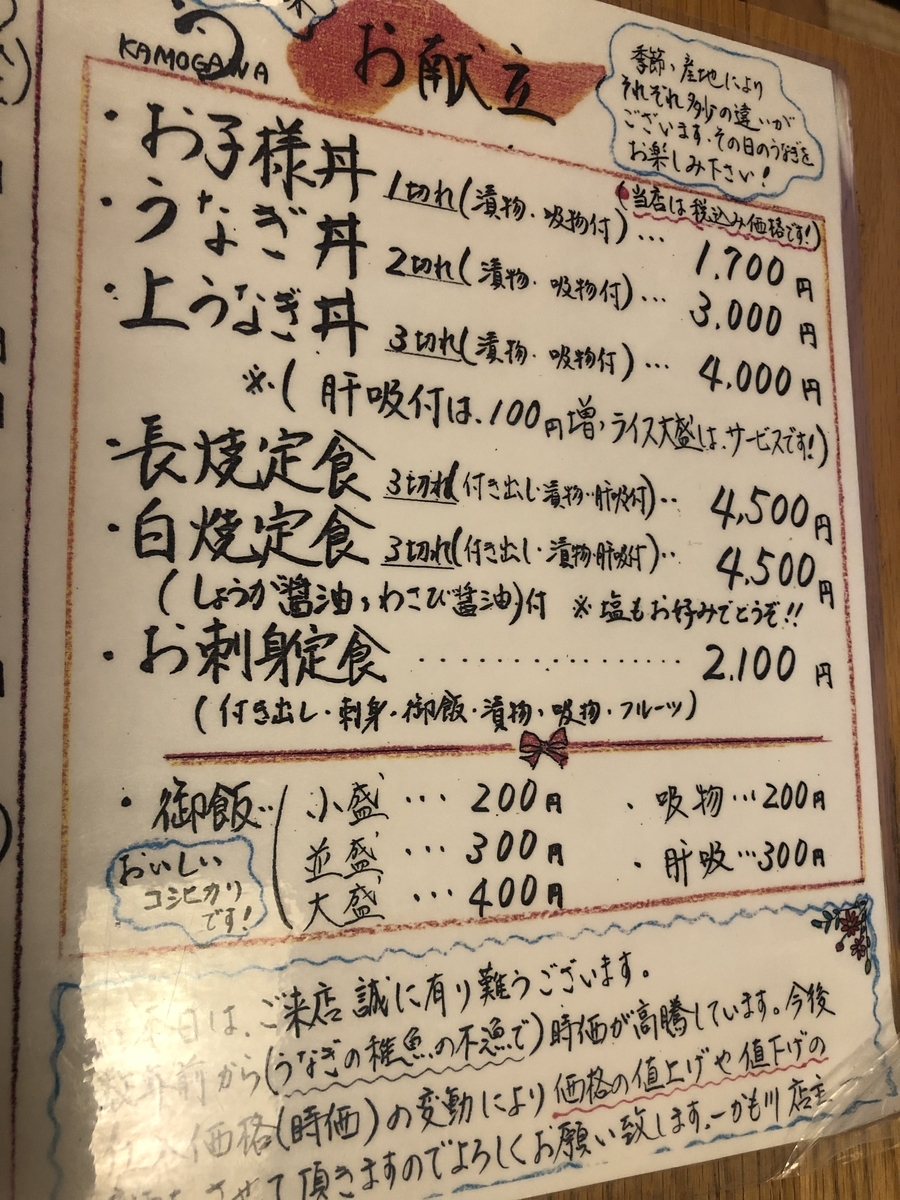 う
KAMOGAWA
お献立
季節、産地により
それぞれ多少の違いが
ございます。その日のうなぎを
お楽しみ下さい!
(当店は税込み価格です!)
・お子様丼 1切れ(漬物・吸物付)… 1,700円
・うなぎ丼 2切れ(漬物・吸物付)… 3,000円
・上うなぎ丼 3切れ(漬物・吸物付)… 4,000円
※(肝吸付は、100円増、ライス大盛は、サービスです!)
・長焼定食 3切れ(付き出し・漬物・肝吸付)‥ 4,500円
・白焼定食 3切れ(付き出し・漬物・肝吸付)‥ 4,500円
(しょうが醤油、わさび醤油)付 ※塩もお好みでどうぞ!!
・お刺身定食 ……………… 2,100円
(付き出し・刺身・御飯・漬物・吸物・フルーツ)
・御飯‥( 小盛 … 200円
並盛 … 300円
大盛 … 400円
おいしい
コシヒカリ
です!
・吸物…200円
・肝吸…300円
本日は、ご来店誠に有り難うございます。
数年前から(うなぎの稚魚の不漁で)時価が高騰しています。今後
仕入価格(時価)の変動により価格の値上げや値下げの
させて頂きますのでよろしくお願い致します。ーかも川店主